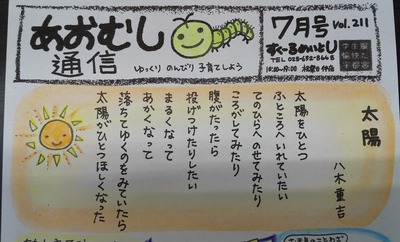 あおむし
通信
ゆっくり のんびり 子育てしよう
7月号 Vol.211
すく〜るめいとU
学生服
太陽
八木重吉
太陽をひとつ
ふところへいれていたい
てのひらへのせてみたり
ころがしてみたり
腹がたったら
投げつけたりしたい
まるくなって
あかくなって
落ちてゆくのをみていたら
太陽がひとつほしくなった